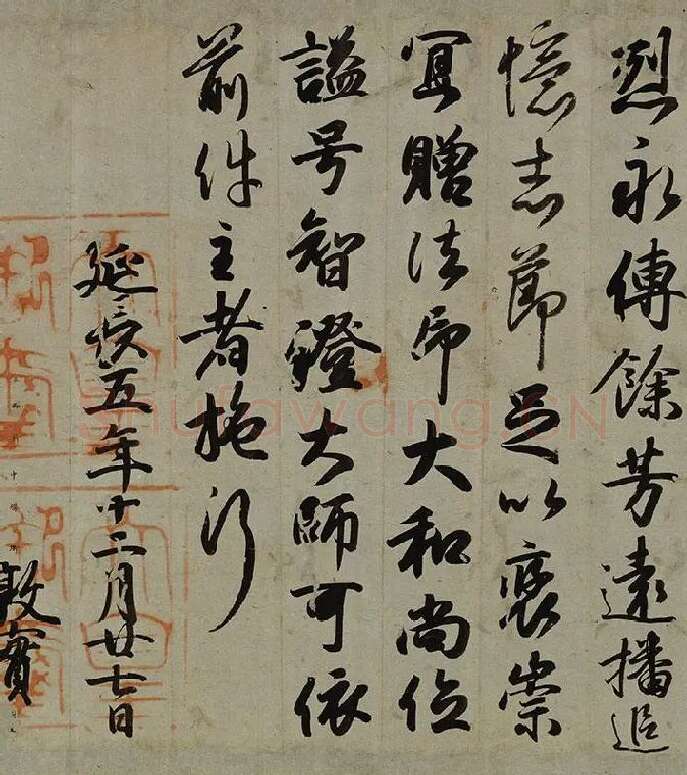 烈永傳餘芳遠播追
憶志節足以褒崇
冝贈法印大和尚位
諡号智證大師可依
前件主者施行
延長五年十二月廿七日
敦實
shufawang.CN